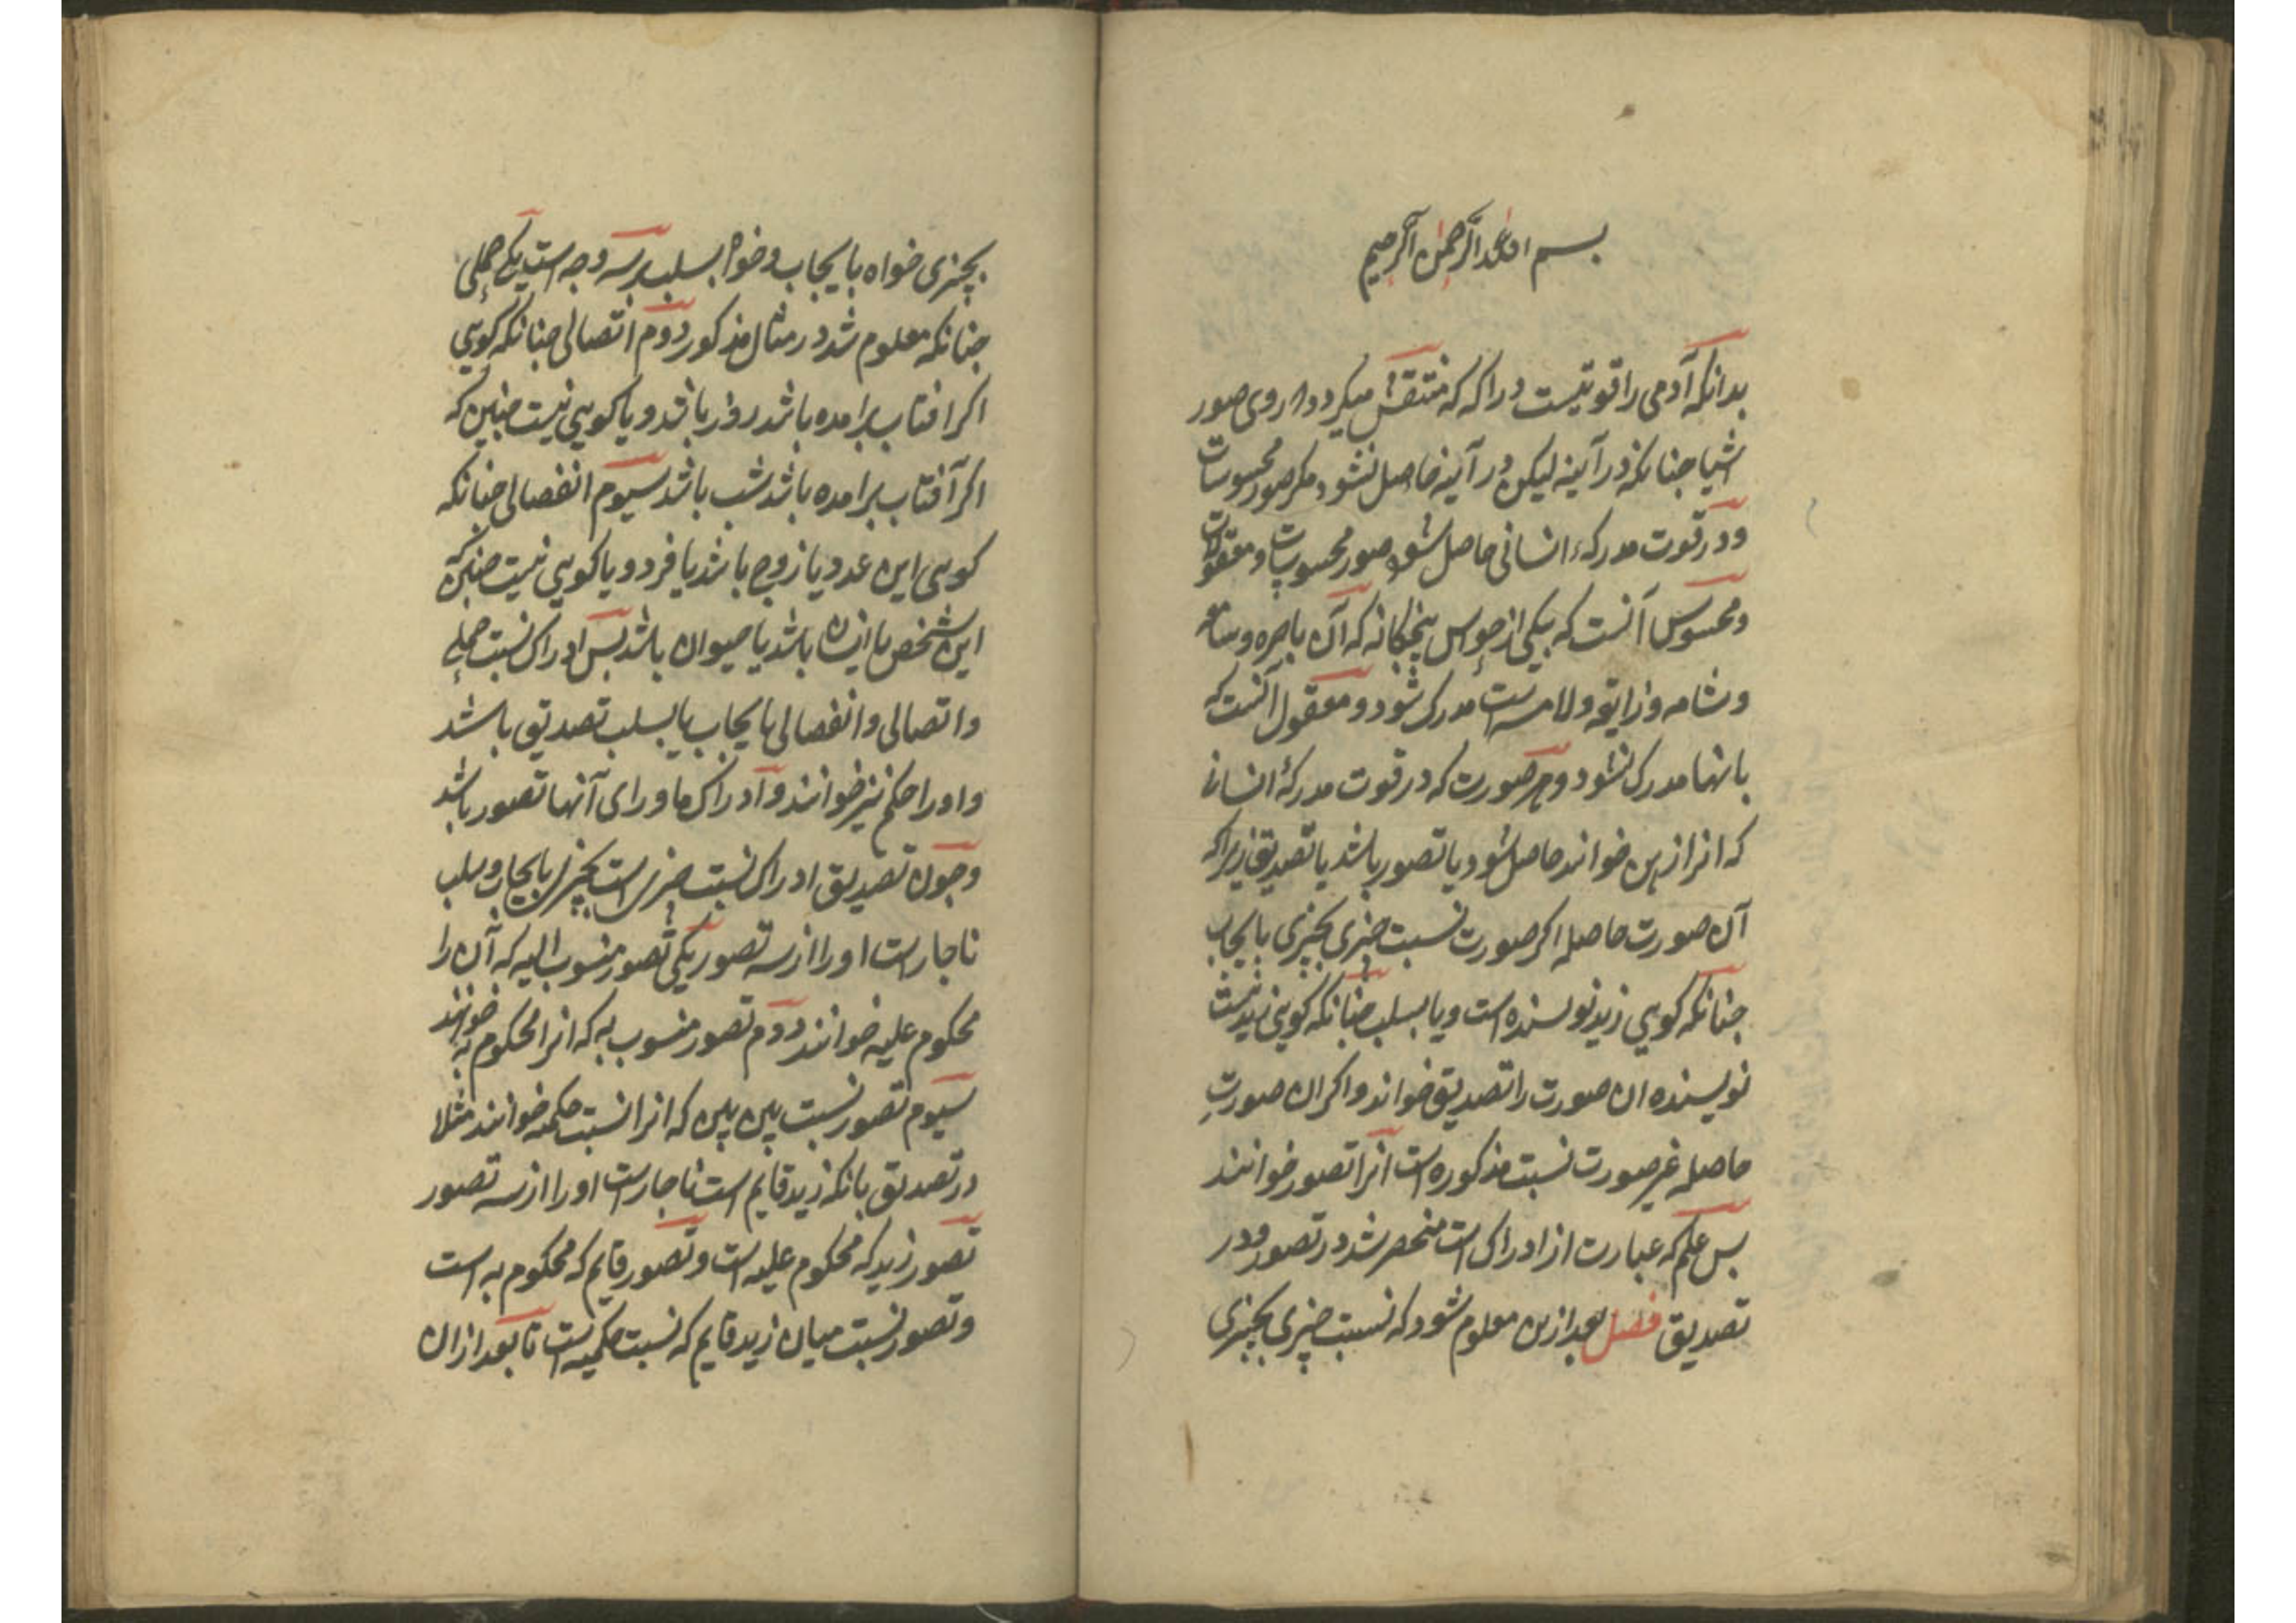 بسم الله الرحمن الرحيم
بدانكه آدمى را قوتيست دراكه كه منتقش ميكردد دروى صور
اشيا جنانكه در آينه ليكن در آينه حاصل نشود مكر صور محسوسات
ودر قوت مدركه انسانى حاصل شود صور محسوسات و معقولات
ومحسوس آنست كه بيكى از حواس پنجكانه كه آن باصره و سامعه
وشامه وذايقه ولامسه است مدرك شود و معقول آنست كه
باينها مدرك نشود وهر صورت كه در قوت مدركهٔ انسانى
كه انرا ذهن خوانند حاصل شود يا تصور باشد يا تصديق زيرا كه
آن صورت حاصله اكر صورت نسبت چيزى بچيزى بايجاب
جنانكه كويى زيد نويسنده است ويا بسلب جنانكه كويى زيد نيست
نويسنده ان صورت را تصديق خوانند واكر ان صورتِ
حاصله غير صورت نسبت مذكوره است آنرا تصور خوانند
بس علم كه عبارت از ادراك است منحصر شد در تصور ودر
تصديق فصل بعد ازين معلوم شود كه نسبت چيزى بچيزى
بچيزى خواه بايجاب وخواه بسلب برسه وجه است يكى حملى
جنانكه معلوم شد در مثال مذكور دوم اتصالى جنانكه كويى
اكر افتاب برامده باشد روز باشد ويا كويى نيست جنين كه
اكر آفتاب برامده باشد شب باشد سيوم انفصالى جنانكه
كويى اين عدد يا زوج باشد يا فرد ويا كويى نيست جنين كه
اين شخص يا انسان باشد يا حيوان باشد بس ادراك نسبت حملى
واتصالى وانفصالى بايجاب يا بسلب تصديق باشد
واورا حكم نيز خوانند وادراك ماوراى آنها تصور باشد
وجون تصديق ادراك نسبت چيزى است بچيزى بايجاب وسلب
ناجار است اورا از سه تصور يكى تصور منسوب اليه كه آن را
محكوم عليه خوانند دوم تصور منسوب به كه انرا محكوم به خوانند
سيوم تصور نسبت بين بين كه انرا نسبت حكميه خوانند مثلا
در تصديق بانكه زيد قايم است ناجار است اورا از سه تصور
تصور زيد كه محكوم عليه است وتصور قايم كه محكوم به است
وتصور نسبت ميان زيد قايم كه نسبت حكميه است تا بعد ازان